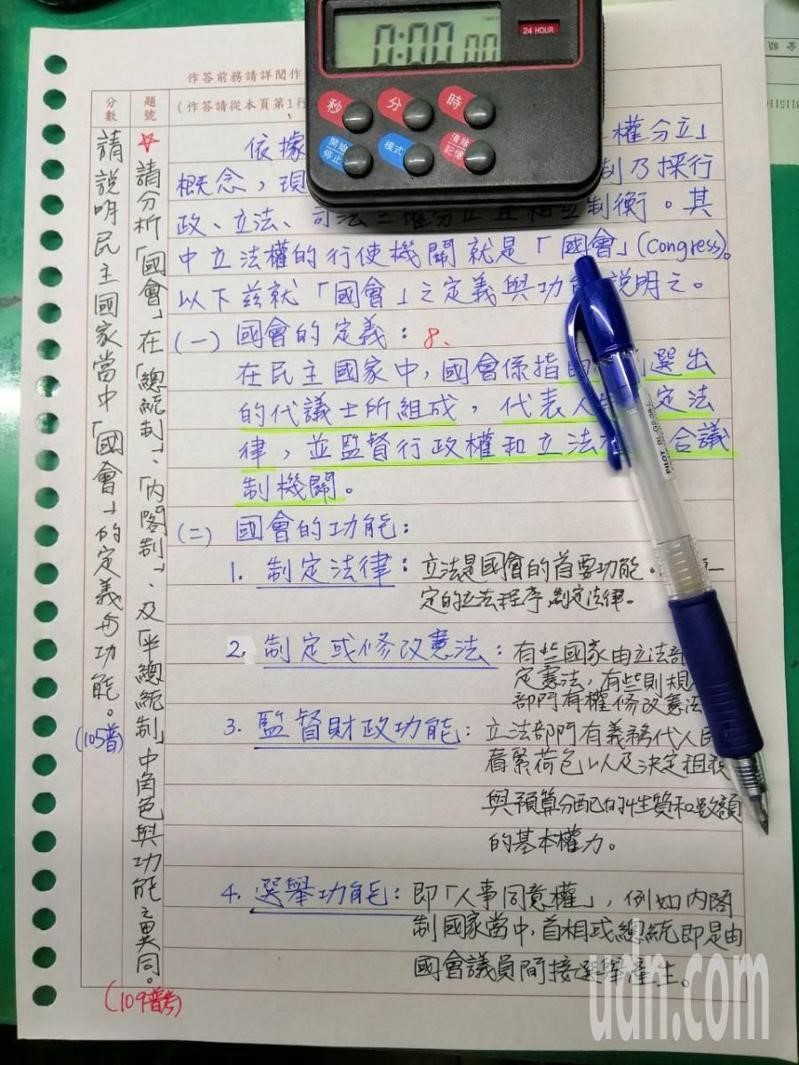 24 HOUR
0:00 00
秒 分 時
開始 停止 模式 清除 記憶
作答前務請詳閱作
(作答請從本頁第1行
題號
分數
☆請分析「國會」在「總統制」、「內閣制」、及「半總統制」中角色與功能之異同。
(109普考)
請說明民主國家當中「國會」的定義與功能。
(105普)
依據 權分立」
概念,現 制乃採行
政、立法、司法三權分立且相互制衡。其
中立法權的行使機關就是「國會」(Congress)。
以下茲就「國會」之定義與功能說明之。
(一) 國會的定義: 8.
在民主國家中,國會係指 選出
的代議士所組成,代表人 定法
律,並監督行政權和立法 合議
制機關。
(二) 國會的功能:
1. 制定法律: 立法是國會的首要功能。
定的立法程序,制定法律。
2. 制定或修改憲法: 有些國家由立法部
定憲法,有些則規
部門有權修改憲法
3. 監督財政功能: 立法部門有義務代人民
看緊荷包以及決定租稅
與預算分配的性質和數額
的基本權力。
4. 選舉功能: 即「人事同意權」,例如內閣
制國家當中,首相或總統即是由
國會議員間接選舉產生。
PILOT
udn.com